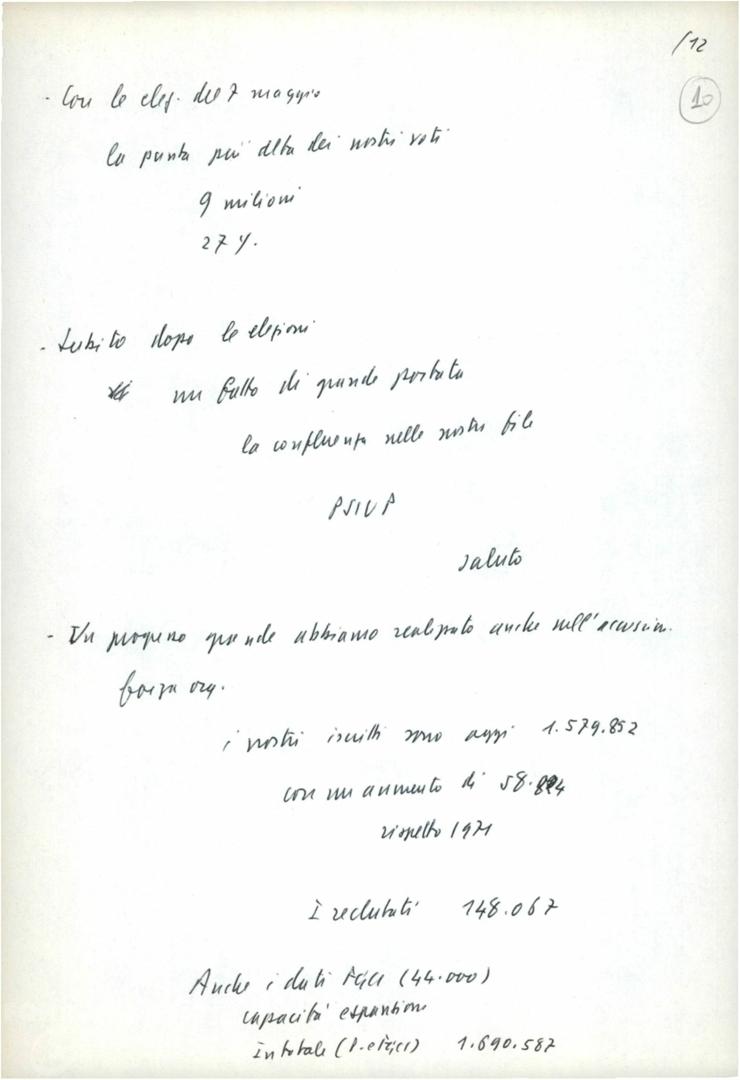 /12
10
- Con le elez. del 7 maggio
la punta più alta dei nostri voti
9 milioni
27 %.
- Subito dopo le elezioni
un fatto di grande portata
la confluenza nelle nostre file
PSIUP
saluto
- Un progresso grande abbiamo realizzato anche nell'accrescim.
forza org.
i nostri iscritti sono oggi 1.579.852
con un aumento di 58.
rispetto 1971
I reclutati 148.067
Anche i dati FGCI (44.000)
capacità espansione
In totale (P. e FGCI) 1.690.587